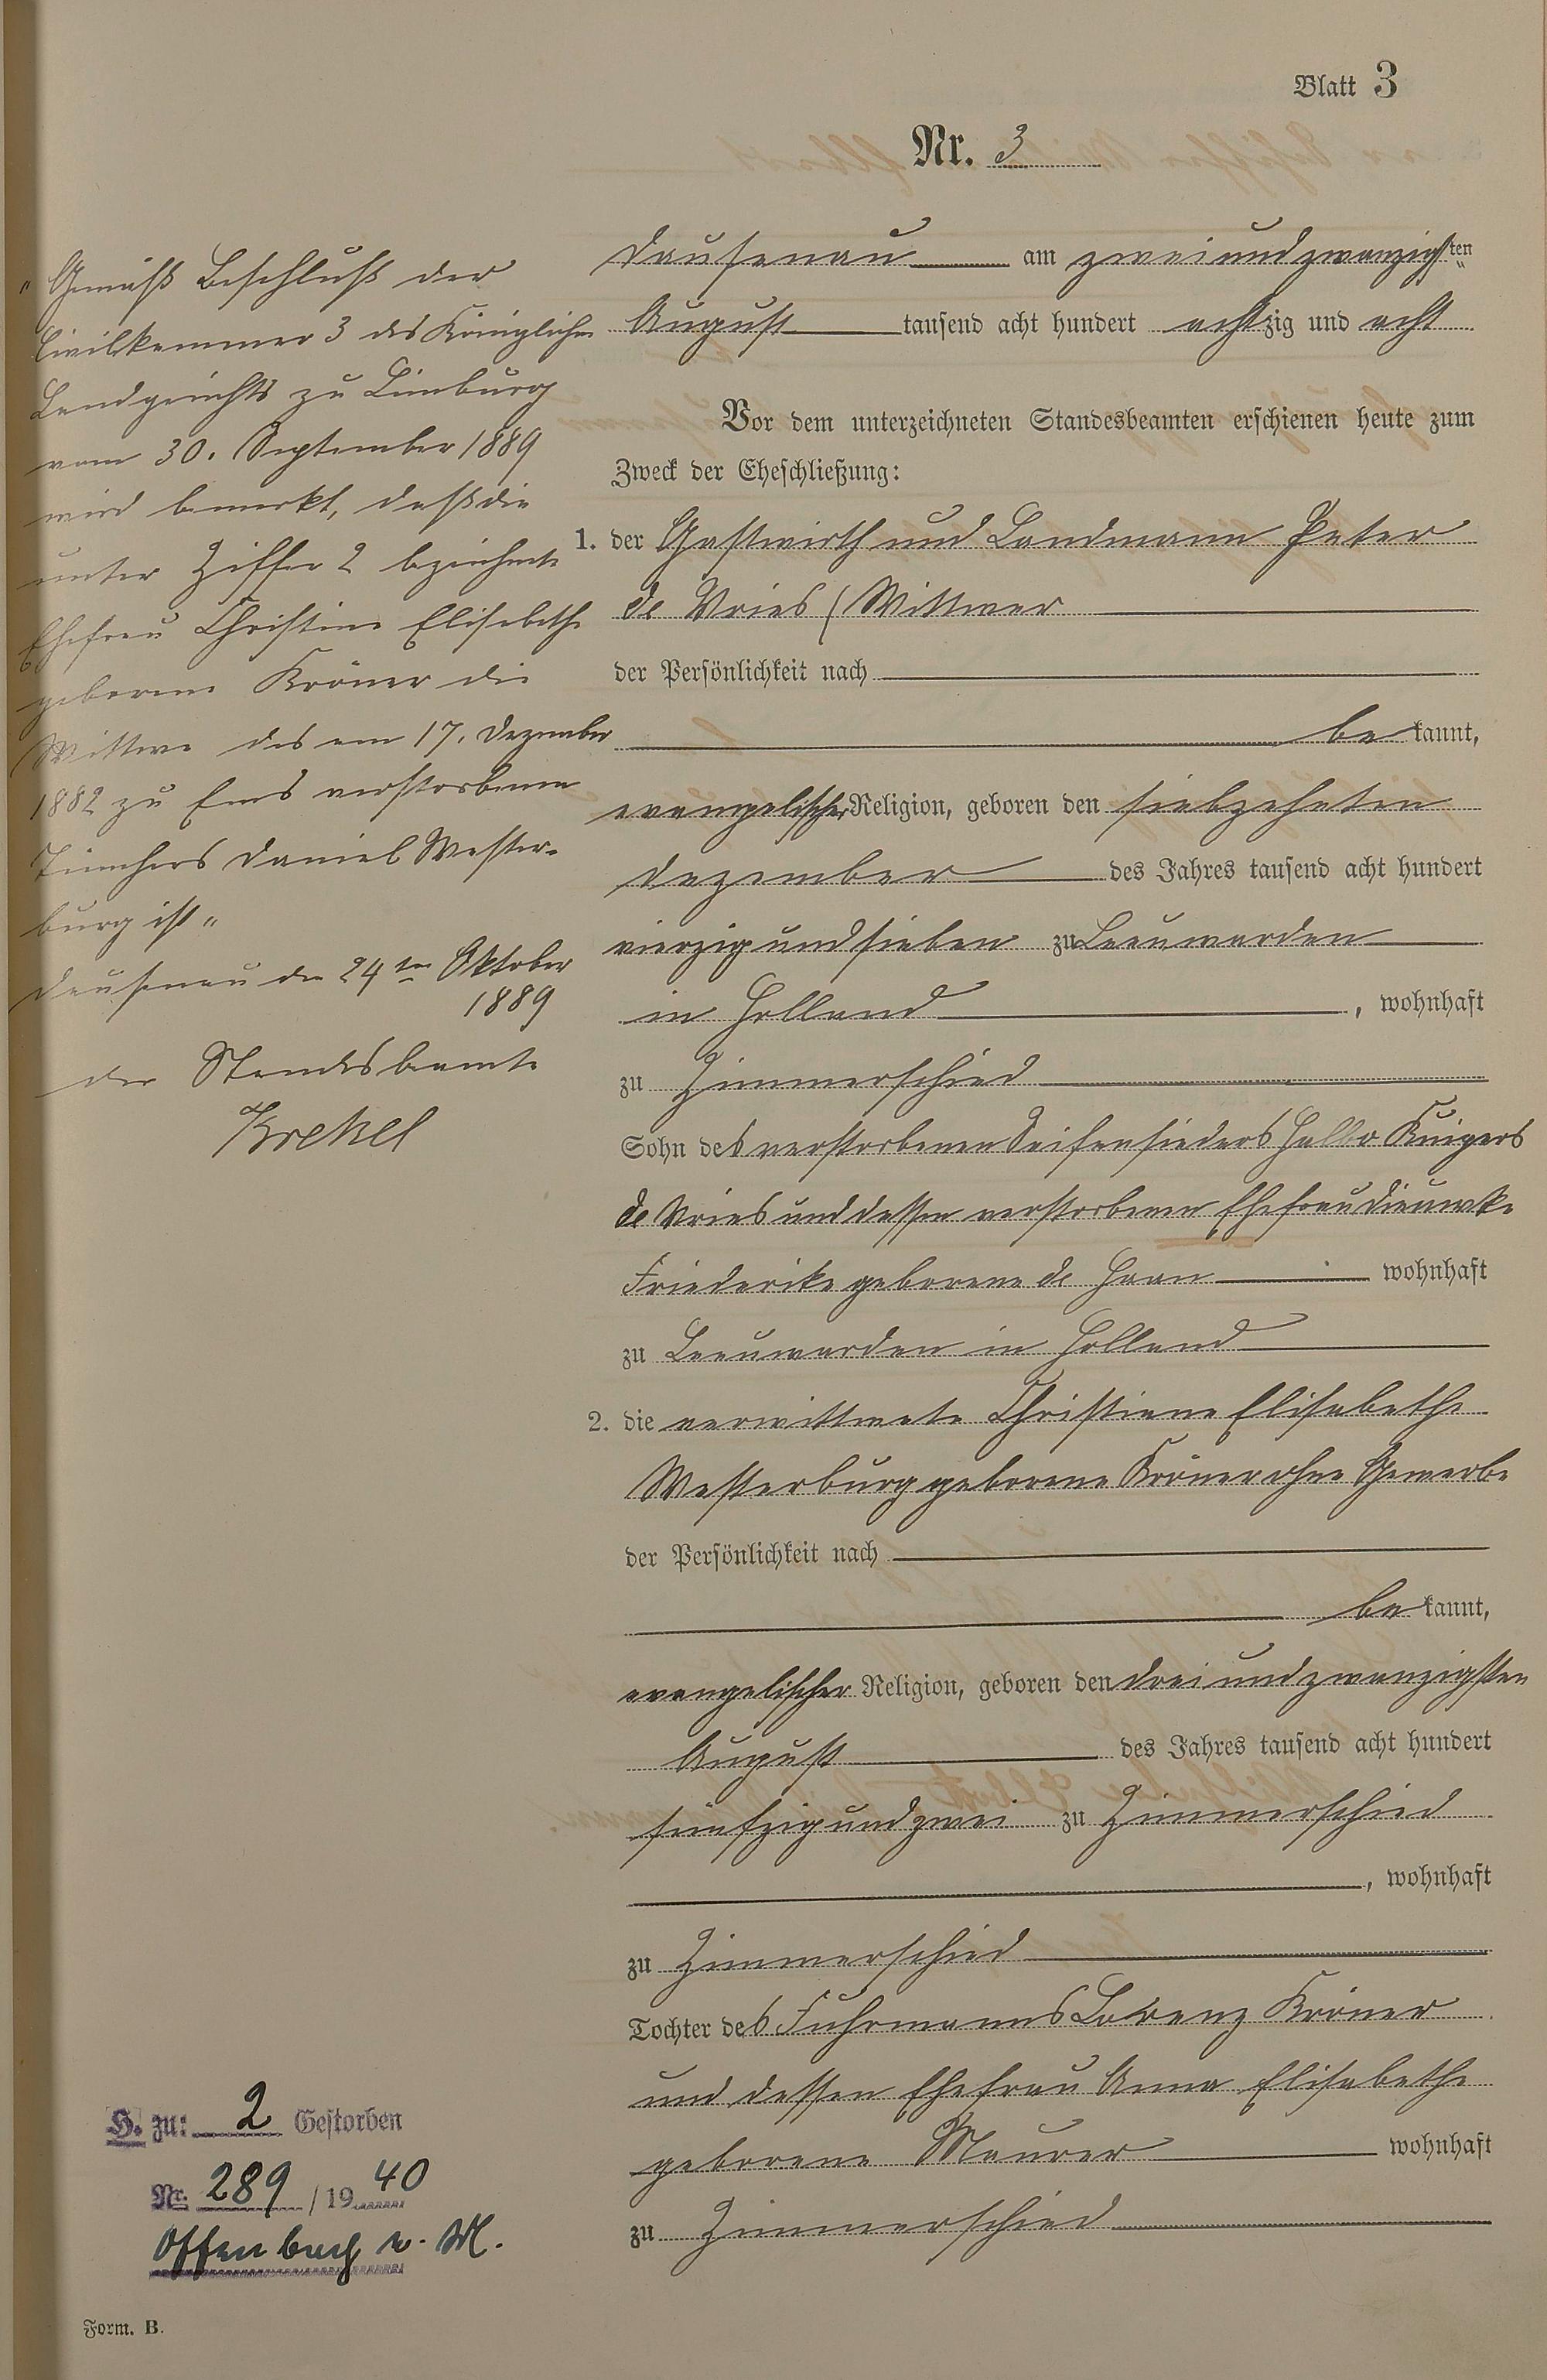 Blatt 3
Nr. 3
Dausenau am zweiundzwanzigsten
August tausend acht hundert achtzig und acht
Vor dem unterzeichneten Standesbeamten erschienen heute zum
Zweck der Eheschließung:
1. der Gastwirth und Landmann Peter
de Vries (Wittwer
der Persönlichkeit nach
bekannt,
evangelischer Religion, geboren den siebzehnten
Dezember des Jahres tausend acht hundert
vierzig und sieben zu Leeuwarden
in Holland, wohnhaft
zu Zimmerschied
Sohn des verstorbenen Seifensieders Halbo Kuipers
de Vries und dessen verstorbenen Ehefrau Dieuwke
Friederike geborene de Haan wohnhaft
zu Leeuwarden in Holland
2. die verwittwete Christiane Elisabethe
Westerburg geborene Kröner ohne Gewerbe
der Persönlichkeit nach
bekannt,
evangelischer Religion, geboren den dreiundzwanzigsten
August des Jahres tausend acht hundert
fünfzig und zwei zu Zimmerschied
, wohnhaft
zu Zimmerschied
Tochter des Fuhrmanns Lorenz Kröner
und dessen Ehefrau Anna Elisabethe
geborene Maurer wohnhaft
zu Zimmerschied
"Gemäß Beschluß der
Civilkammer 3 des Königlichen
Landgerichts zu Limburg
vom 30. September 1889
wird bemerkt, daß die
unter Ziffer 2 bezeichnete
Ehefrau Christine Elisabethe
geborene Kröner die
Wittwe des am 17. Dezember
1882 zu Ems verstorbenen
Tünchers Daniel Wester-
burg ist"
Dausenau den 24ten Oktober
1889
Der Standesbeamte
Krekel
H. zu: 2 Gestorben
Nr. 289 / 1940
Offenbach a. M.
Form. B.